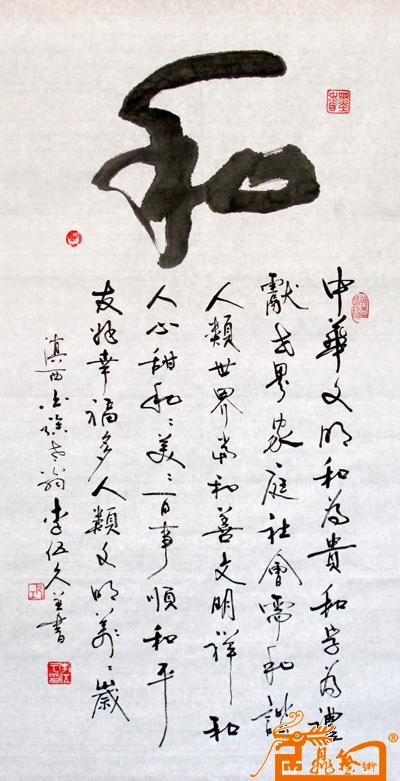 和
中華文明和為貴和字為禮
獻世界家庭社會需和諧
人類世界尚和善文明祥和
人心甜和〻美〻百事順和平
友好幸福多人類文明萬〻歲
滇西老翁李伍久並書